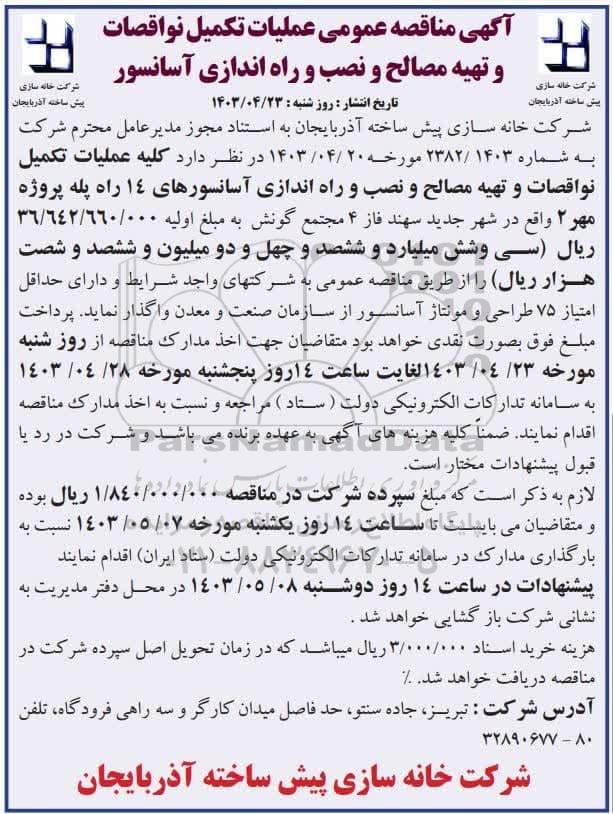 آگهی مناقصه عمومی عملیات تکمیل نواقصات
و تهیه مصالح و نصب و راه اندازی آسانسور
شرکت خانه سازی
پیش ساخته آذربایجان
شرکت خانه سازی
پیش ساخته آذربایجان
تاریخ انتشار : روز شنبه : ۱۴۰۳/۰۴/۲۳
شرکت خانه سازی پیش ساخته آذربایجان به استناد مجوز مدیرعامل محترم شرکت
به شماره ۱۴۰۳ /۲۳۸۲ مورخه ۲۰ /۰۴/ ۱۴۰۳ در نظر دارد کلیه عملیات تکمیل
نواقصات و تهیه مصالح و نصب و راه اندازی آسانسورهای ۱۴ راه پله پروژه
مهر۲ واقع در شهر جدید سهند فاز ۴ مجتمع گونش به مبلغ اولیه ۳۶/۶۴۲/۶۶۰/۰۰۰
ریال (سی وشش میلیارد و ششصد و چهل و دو میلیون و ششصد و شصت
هزار ریال) را از طریق مناقصه عمومی به شرکتهای واجد شرایط و دارای حداقل
امتیاز ۷۵ طراحی و مونتاژ آسانسور از سازمان صنعت و معدن واگذار نماید. پرداخت
مبلغ فوق بصورت نقدی خواهد بود متقاضیان جهت اخذ مدارک مناقصه از روز شنبه
مورخه ۲۳/ ۰۴/ ۱۴۰۳لغایت ساعت ۱۴روز پنجشنبه مورخه ۲۸/ ۰۴/ ۱۴۰۳
به سامانه تدارکات الکترونیکی دولت ( ستاد ) مراجعه و نسبت به اخذ مدارک مناقصه
اقدام نمایند. ضمناً کلیه هزینه های آگهی به عهده برنده می باشد و شرکت در رد یا
قبول پیشنهادات مختار است.
لازم به ذکر است که مبلغ سپرده شرکت در مناقصه ۱/۸۴۰/۰۰۰/۰۰۰ ریال بوده
و متقاضیان می بایست تا ساعت ۱۴ روز یکشنبه مورخه ۰۷/ ۰۵/ ۱۴۰۳ نسبت به
بارگذاری مدارک در سامانه تدارکات الکترونیکی دولت (ستاد ایران) اقدام نمایند
پیشنهادات در ساعت ۱۴ روز دوشنبه ۰۸/ ۰۵/ ۱۴۰۳ در محل دفتر مدیریت به
نشانی شرکت باز گشایی خواهد شد .
هزینه خرید اسناد ۳/۰۰۰/۰۰۰ ریال میباشد که در زمان تحویل اصل سپرده شرکت در
مناقصه دریافت خواهد شد. ٪
آدرس شرکت : تبریز، جاده سنتو، حد فاصل میدان کارگر و سه راهی فرودگاه، تلفن
۸۰ - ۳۲۸۹۰۶۷۷
شرکت خانه سازی پیش ساخته آذربایجان
ParsNamadData
۰۲۱-۸۸۳۴۹۶۷۰-۵